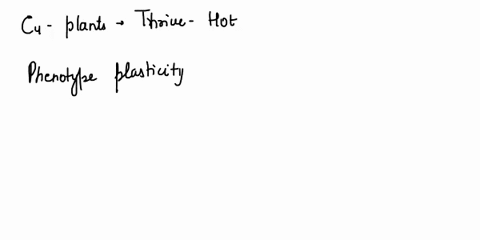 C4 - plants → Thrive - Hot
Phenotype plasticity